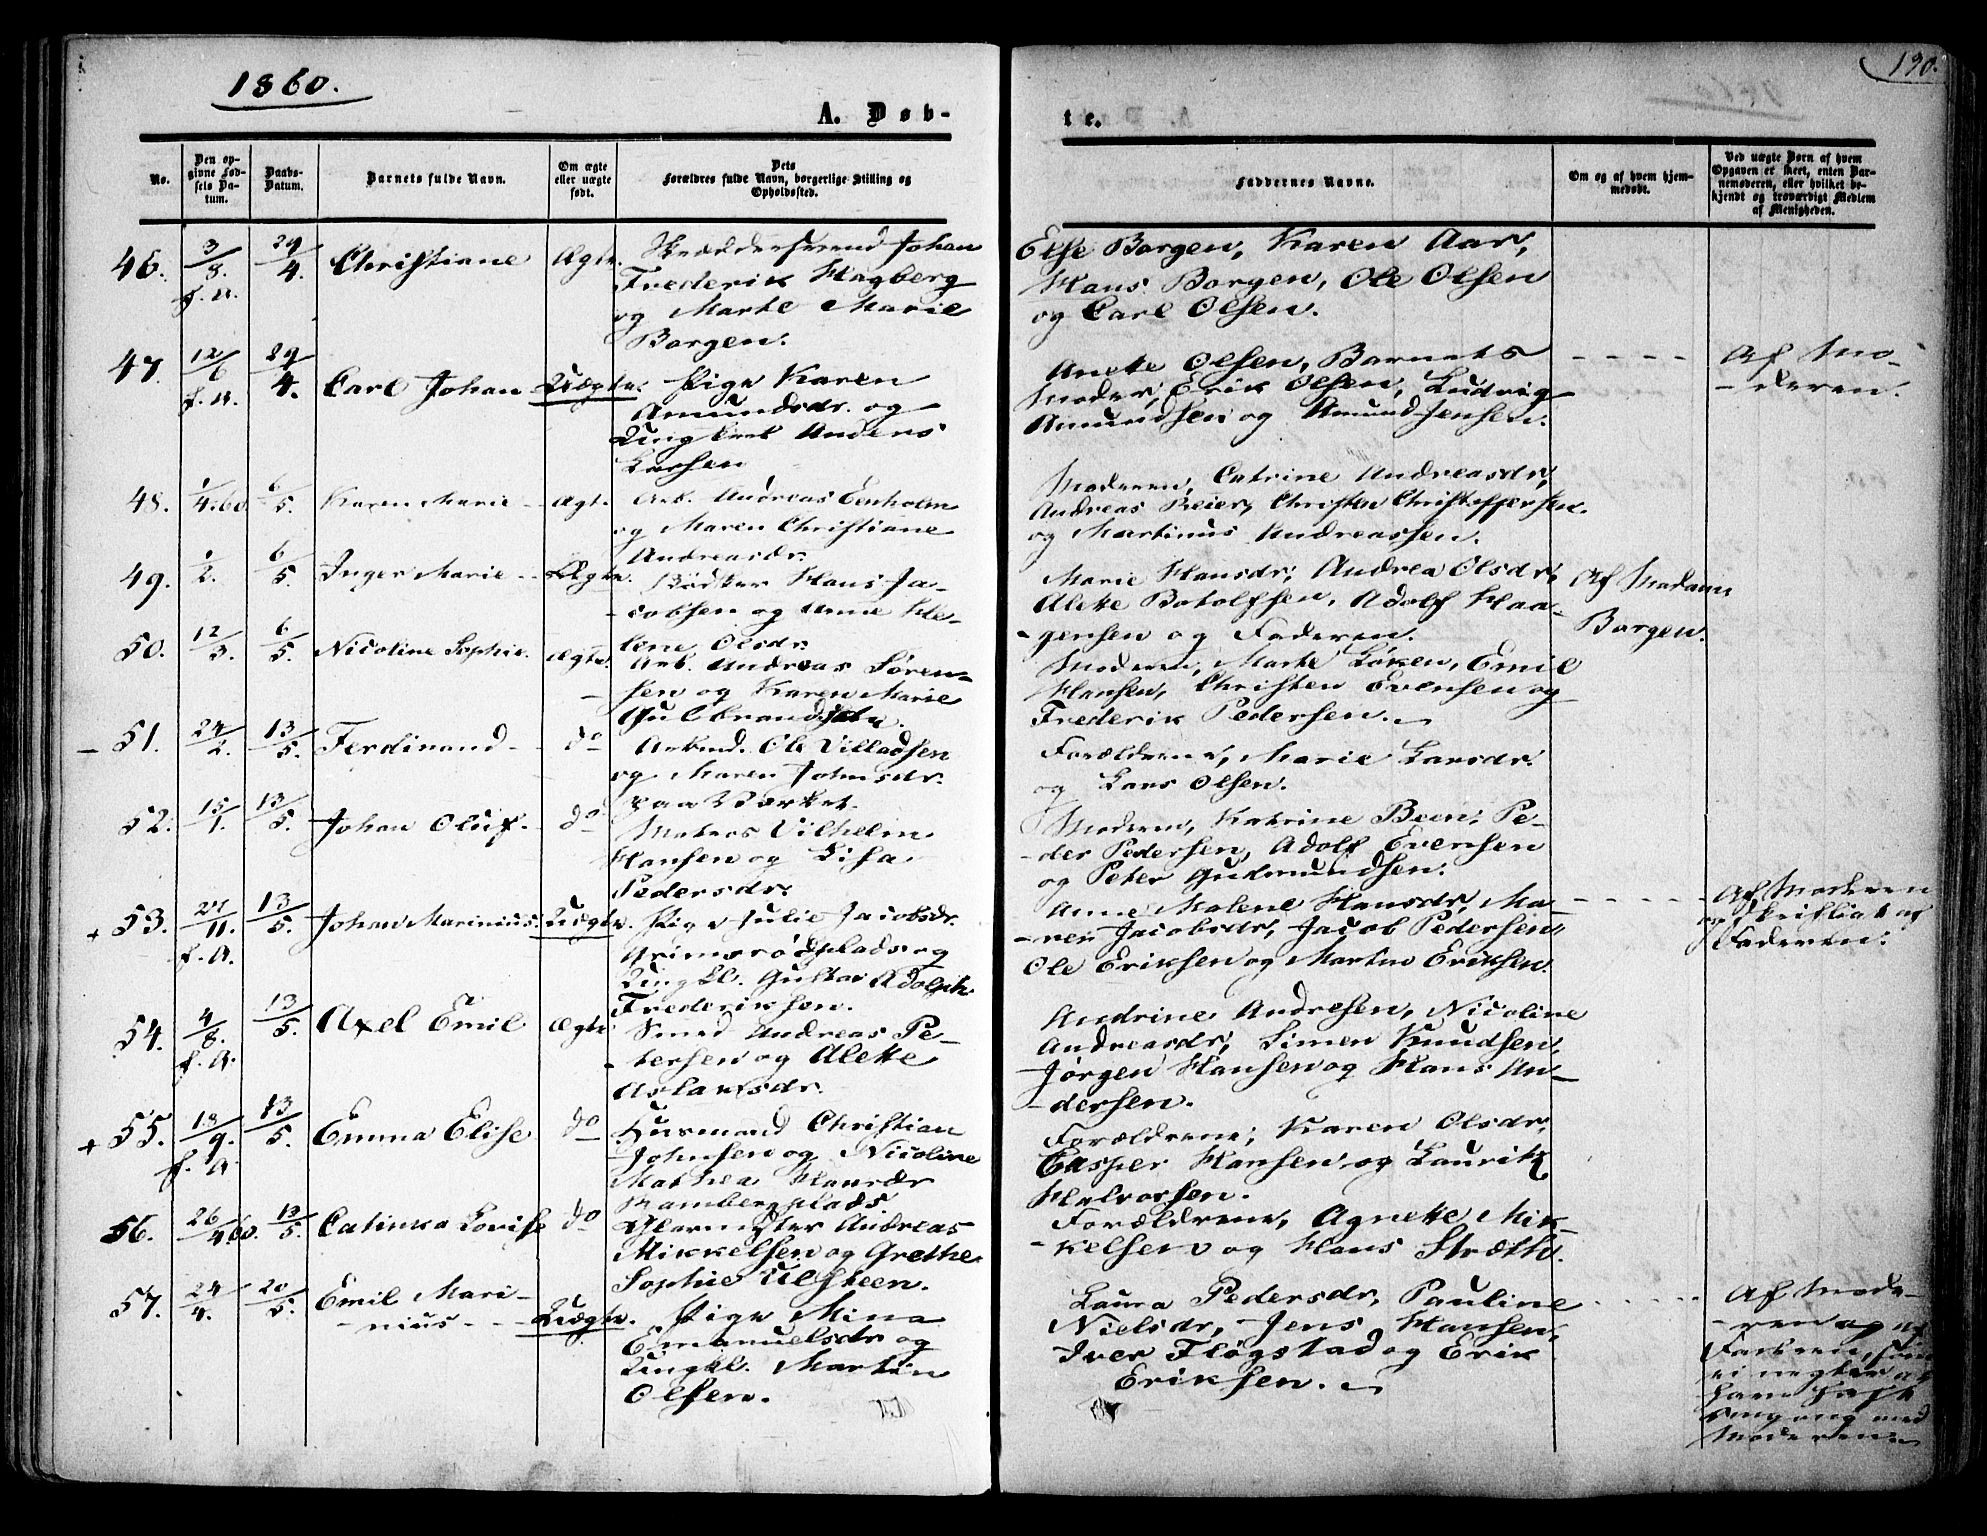 1860.
190.
A. Døb-
te.
No.
Den op-
givne Fød-
sels Da-
tum.
Daabs-
Datum.
Barnets fulde Navn.
Om ægte
eller uægte
født.
Dets
Forældres fulde Navn, borgerlige Stilling og
Opholdssted.
Faddernes Navne.
Om og af hvem hjem-
medøbt.
Ved uægte Børn af hvem
Opgaven er skeet, enten Bar-
nemoderen, eller hvilket be-
kjendt og troværdigt Medlem
af Menigheden.
46. 3/8. f. A. 29/4. Christiane Ægte.
Skræddersvend Johan
Frederik Hagberg
og Marte Marie
Borgen.
Else Borgen, Karen Aas,
Hans Borgen, Ole Olsen
og Carl Olsen.
47. 12/6 f. A. 29/4. Carl Johan Uægte.
Pige Karen
Amundsdr. og
Ungkarl Anders
Larsen
Anette Olsen, Barnets
Moder, Erik Olsen, Ludvig
Amundsen og Amund Jensen.
Af Mo-
deren.
48. 1/4.60. 6/5. Karen Marie Ægte.
Arb. Andreas Evnholm
og Maren Christiane
Andreasdr.
Moderen, Catrine Andreasdr,
Andreas Beier, Christen Christoffersen.
og Martinus Andreassen.
49. 1/2. 6/5. Inger Marie Ægte.
Bødker Hans Ja-
cobsen og Anne He-
lene Olsdr.
Marie Hansdr, Andrea Olsdr,
Alette Botolfsen, Adolf Haa-
gensen og Faderen.
Af Madam
Borgen.
50. 12/3. 6/5. Nicoline Sophie. Ægte.
Arb. Andreas Søren-
sen og Karen Marie
Gulbrandsdr.
Moderen, Marte Løken, Emil
Hansen, Christen Evensen og
Frederik Pedersen.
51. 24/2. 13/5. Ferdinand do
Arbmd. Ole Villadsen
og Maren Johnsdr.
paa Værket.
Forældrene, Marie Larsdr.
og Lars Olsen.
52. 15/1. 13/5. Johan Oluf. do
Matros Vilhelm
Hansen og Lisa
Pedersdr.
Moderen, Katrine Been, Pe-
der Pedersen, Adolf Evensen
og Peter Gudmundsen.
+ 53. 27/11. f. A. 13/5. Johan Marinius. Uægte.
Pige Julie Jacobsdr.
Grimsrødplads og
Ungkl. Gustav Adolph
Frederiksen.
Anne Malene Hansdr, Ma-
ren Jacobsdr, Jacob Pedersen
Ole Eriksen og Martin Eriksen.
Af Moderen
og skriftligt af
Faderen.
54. 4/8. f. A. 13/5. Axel Emil Ægte
Smed Andreas Pe-
tersen og Alette
Aslaksdr.
Andrine Andresen, Nicoline
Andreasdr, Simen Knudsen,
Jørgen Hansen og Hans An-
dersen.
+ 55. 13/9. f. A. 13/5. Emma Elise do
Husmand Christian
Johnsen og Nicoline
Mathea Hansdr
Kambergplads.
Forældrene, Karen Olsdr,
Casper Hansen og Laurik
Halvorsen.
56. 26/4 60. 13/5. Catinka Lovise do
Glarmester Andreas
Mikkelsen og Grethe
Sophie Ulsteen.
Forældrene, Agnette Mik-
kelsen og Hans Stræth.
57. 24/4. 20/5. Emil Mari-
nius Uægte.
Pige Mina
Emanuelsdr og
Ungkl. Martin
Olsen.
Laura Pedersdr, Pauline
Nielsdr, Jens Hansen,
Iver Fløgstad og Erik
Eriksen.
Af Mode-
ren og af
Faderen, som
ei negter at
have haft
omgang med
Moderen